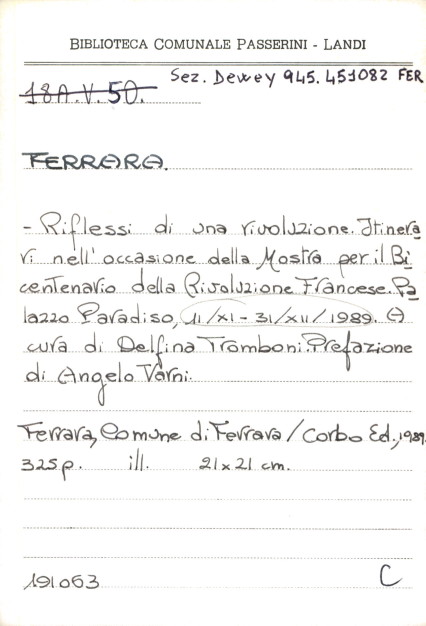 BIBLIOTECA COMUNALE PASSERINI - LANDI
Sez. Dewey 945.451082 FER
18A.V.50.
FERRARA.
- Riflessi di una rivoluzione. Itinera
ri nell'occasione della Mostra per il Bi
centenario della Rivoluzione Francese. Pa
lazzo Paradiso, 11/XI - 31/XII/1989. A
cura di Delfina Tromboni. Prefazione
di Angelo Varni.
Ferrara, Comune di Ferrara / Corbo Ed., 1989.
325 p. ill. 21x21 cm.
191063 C